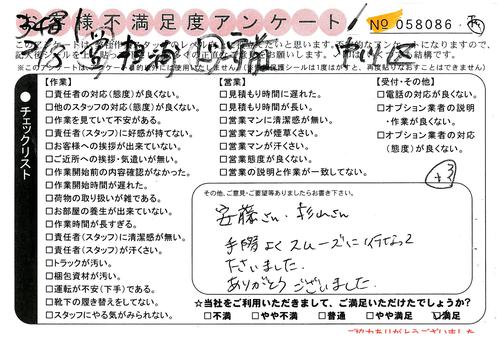 お客様不満足度アンケート
No 058086
チェックリスト
【作業】
□責任者の対応(態度)が良くない。
□他のスタッフの対応(態度)が良くない。
□作業を見ていて不安がある。
□責任者(スタッフ)に好感が持てない。
□お客様への挨拶が出来ていない。
□ご近所への挨拶・気遣いが無い。
□作業開始前の内容確認がなかった。
□作業開始時間が遅れた。
□荷物の取り扱いが雑である。
□お部屋の養生が出来ていない。
□作業時間が長すぎる。
□責任者(スタッフ)に清潔感が無い。
□責任者(スタッフ)が汗くさい。
□トラックが汚い。
□梱包資材が汚い。
□運転が不安(下手)である。
□靴下の履き替えをしてない。
□スタッフにやる気がみられない。
【営業】
□見積もり時間に遅れた。
□見積もり時間が長い。
□営業マンに清潔感が無い。
□営業マンが煙草くさい。
□営業マンが汗くさい。
□営業態度が良くない。
□営業の説明と作業が一致してない。
【受付・その他】
□電話の対応が良くない。
□オプション業者の説明
・作業が良くない。
□オプション業者の対応
(態度)が良くない。
+3
その他、ご意見・ご要望等ありましたらお書き下さい。
安藤さん、杉山さん
手際よくスムーズに行なって
下さいました。
ありがとうございました。
☆当社をご利用いただきまして、ご満足いただけたでしょうか?
□不満 □やや不満 □普通 □やや満足 ☑満足
ご協力ありがとうございました